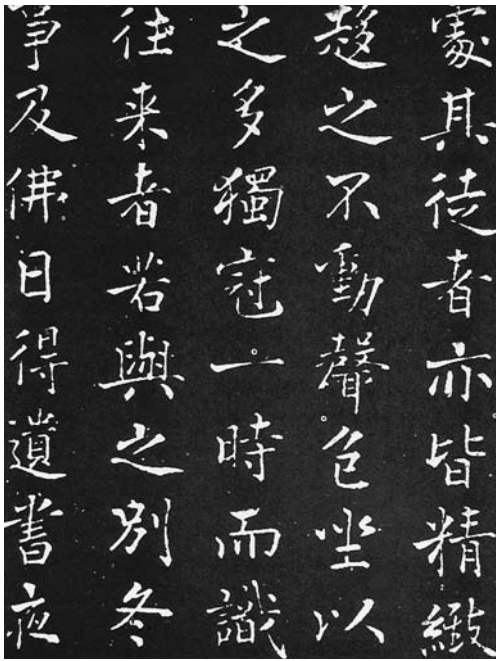 處其徒者亦皆精緻
趍之不動聲色坐以
之多獨冠一時而識
往来者若與之別冬
爭及佛日得遺書夜